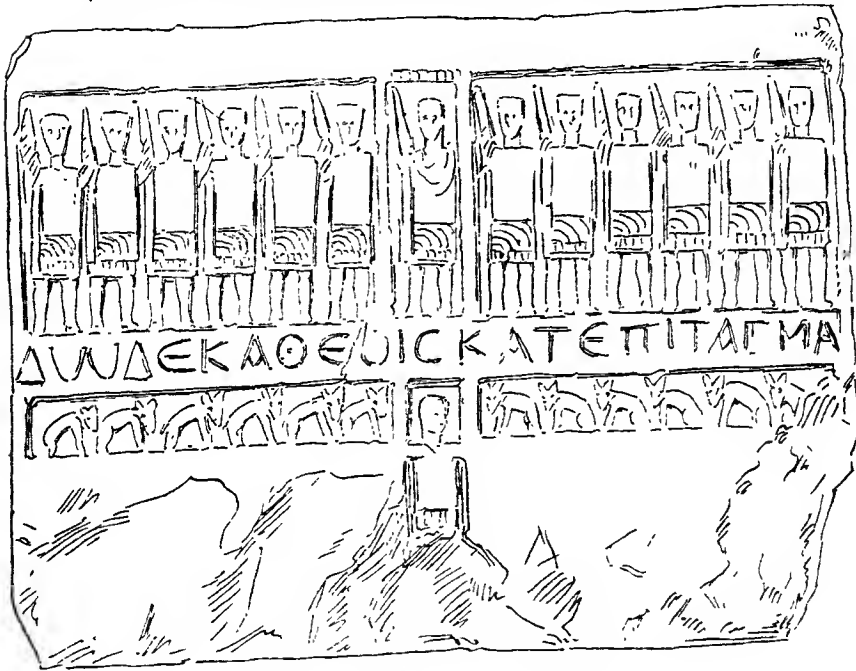 ΔΩΔΕΚΑΘΕΟΙϹΚΑΤΕΠΙΤΑΓΜΑ